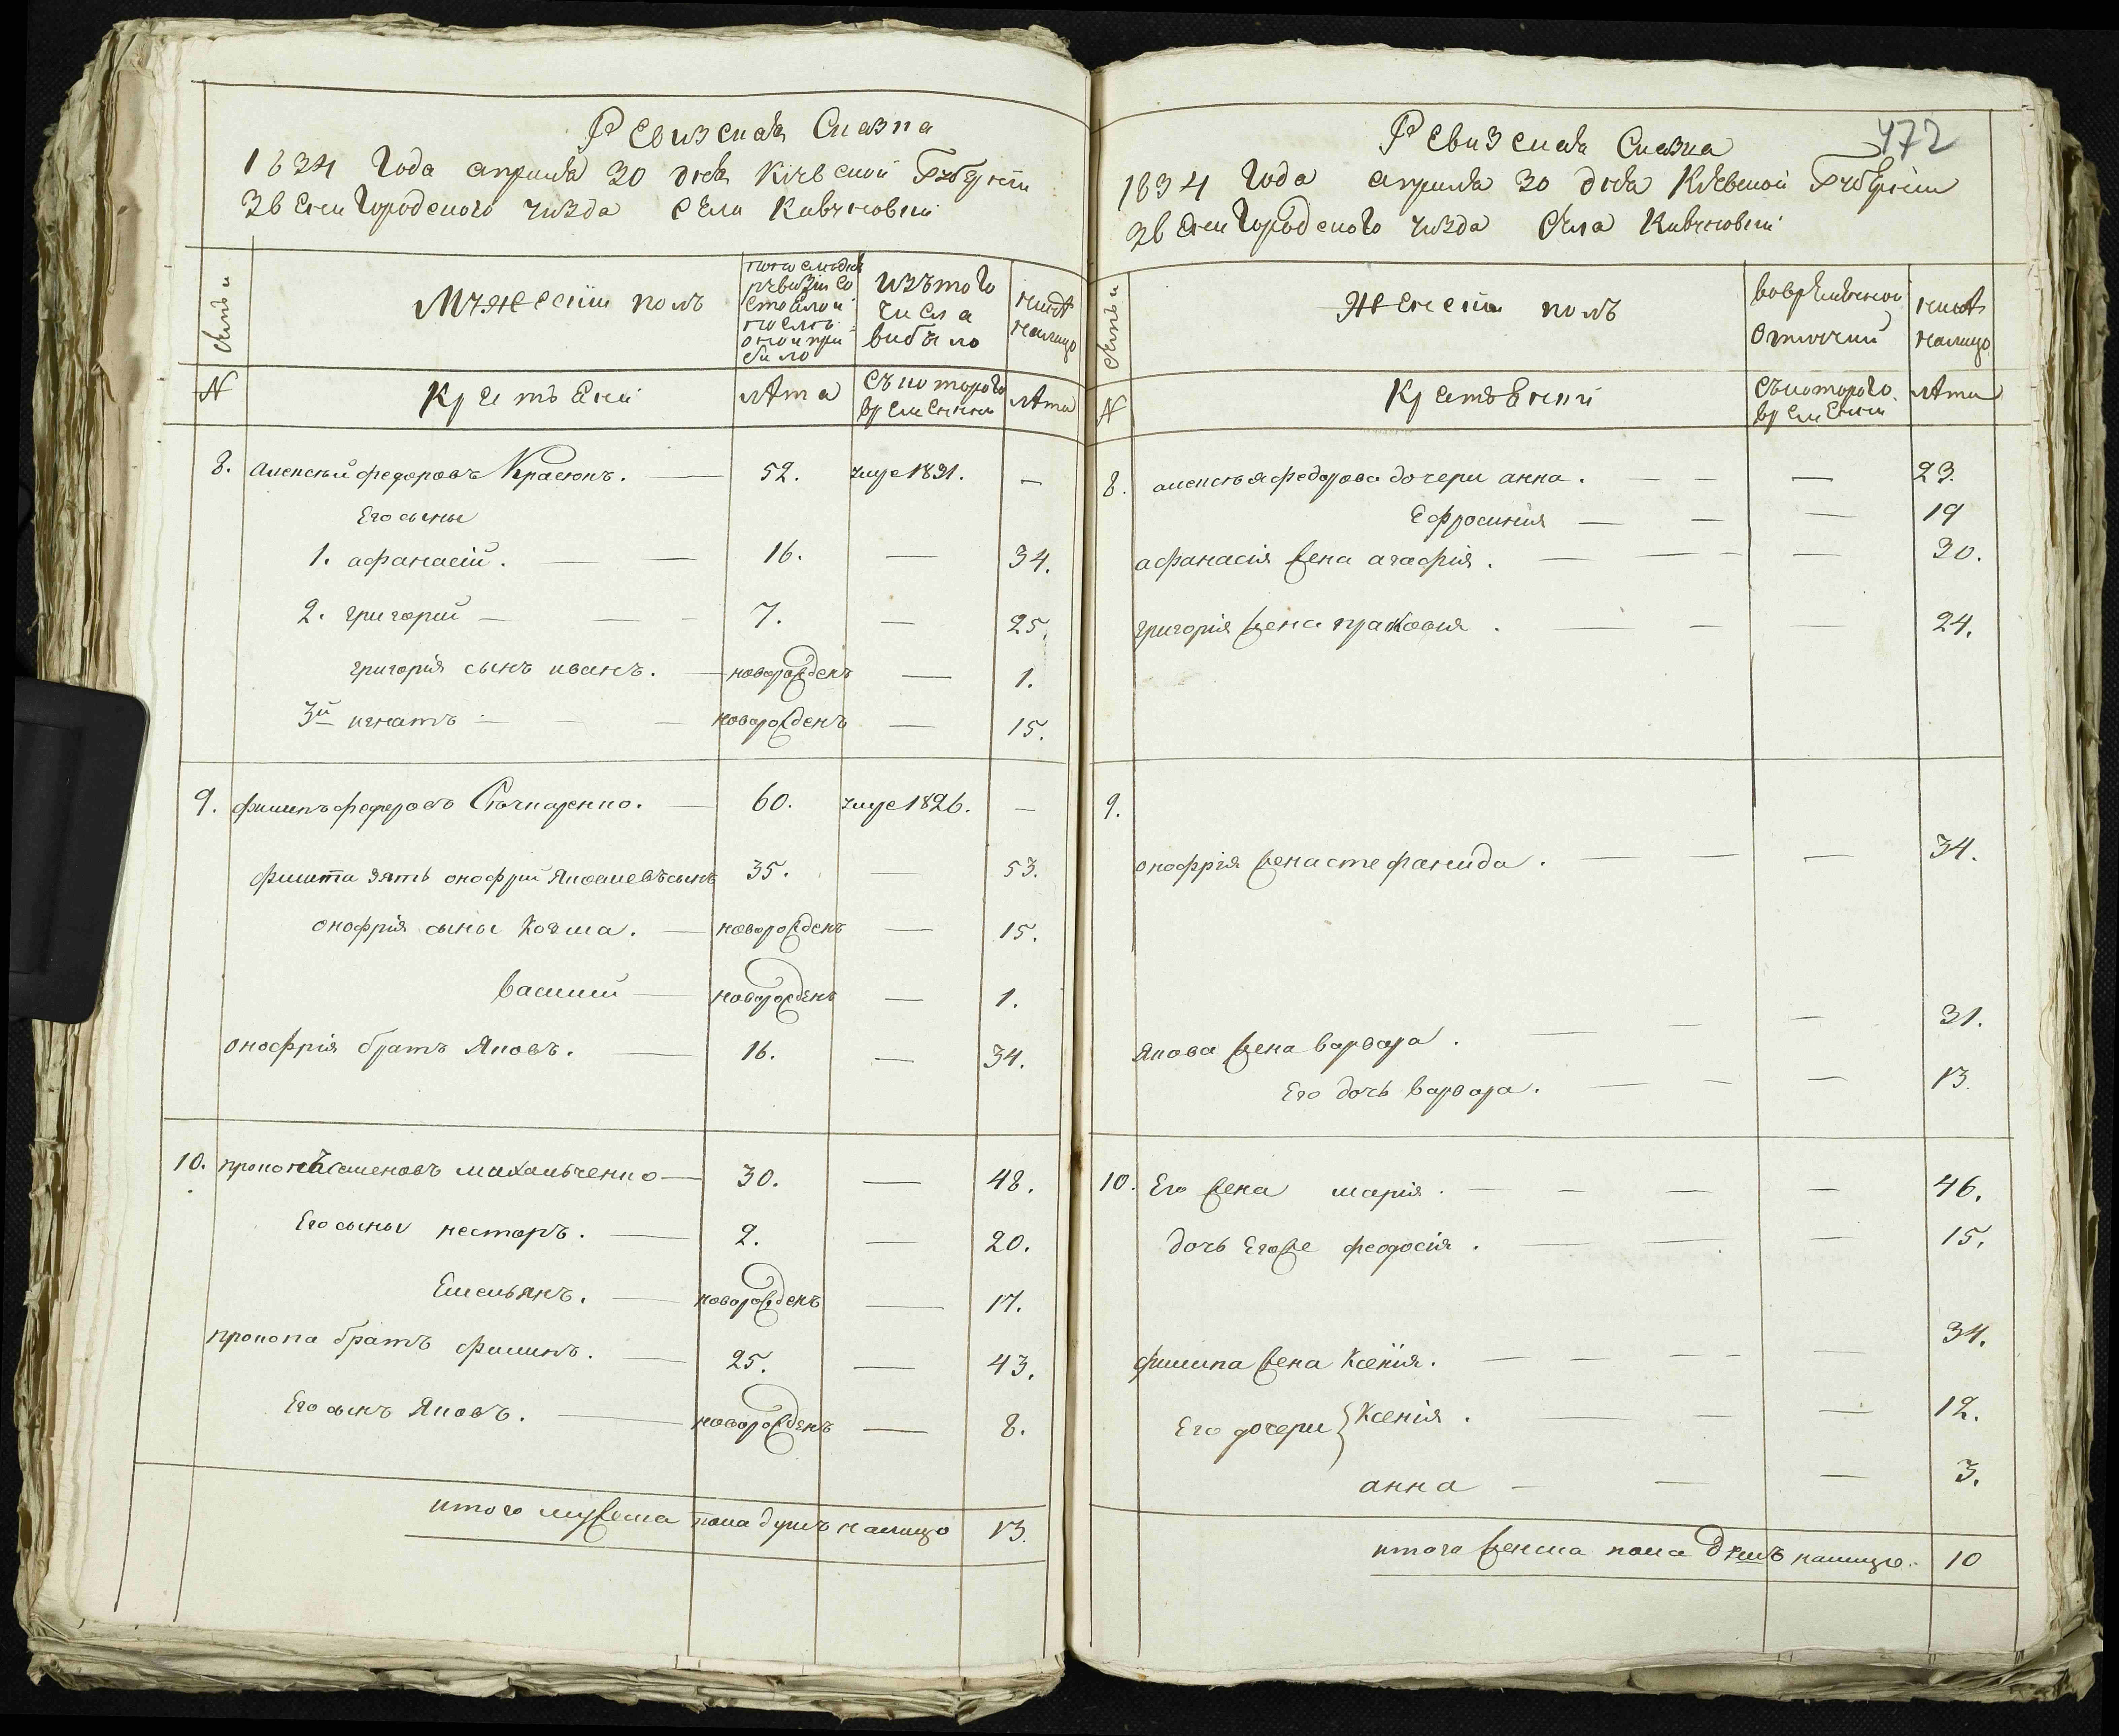 Ревизская Сказка
1834 Года апреля 30 дня Киевской Губернiи
Звенигородского уѣзда Села Кивчновки
Семьи
Мужескiй полъ
по последней ревизiи состояло и после оной прибыло
изъ того числа выбыло
нынѣ налицо
N
Крестьяни
лѣта
съ которого времени
лѣта
8. алексѣй федоровъ Красюкъ. — 52. умре 1831. —
Его сыны
1. афанасiй. — — 16. — 34.
2. григорiй — — — 7. — 25.
григорiя сынъ иванъ. — новорожденъ — 1.
3й игнатъ — — — новорожденъ — 15.
9. филипъ федоровъ Слючкаренко. — 60. умре 1826. —
филипа зять онофрiй Яковлевъ сынъ 35. — 53.
онофрiя сыны Козма. — новорожденъ — 15.
василiй — новорожденъ — 1.
онофрiя братъ Яковъ. — 16. — 34.
10. прокопъ семеновъ михальченко — 30. — 48.
Его сыны несторъ. — 2. — 20.
Емельянъ. — новорожденъ — 17.
прокопа братъ филипъ. — 25. — 43.
Его сынъ Яковъ. — новорожденъ — 8.
итого мужеска пола душъ налицо 13.
472
Ревизская Сказка
1834 Года апреля 30 дня Киевской Губернiи
Звенигородского уѣзда Села Кивчновки
Семьи
Женскiй полъ
во временной отлучки
нынѣ налицо
N
Крестьянки
съ которого времени
лѣта
8. алексѣя федорова дочери анна. — — — 23.
Ефросинiя — — — 19
афанасiя жена агафiя. — — - — 30.
григорiя жена праковiя. — — — 24.
9.
онофрiя жена стефанида. — — — 34.
Якова жена варвара. — — — 31.
Его дочь варвара. — — — 13.
10. Его жена марiя. — — — — 46.
дочь Его же феодосiя. — — — 15.
филипа жена Ксенiя. — — — - — 34.
Его дочери { Ксенiя. — — — 12.
анна — — — 3.
итого женска пола душъ налицо. 10